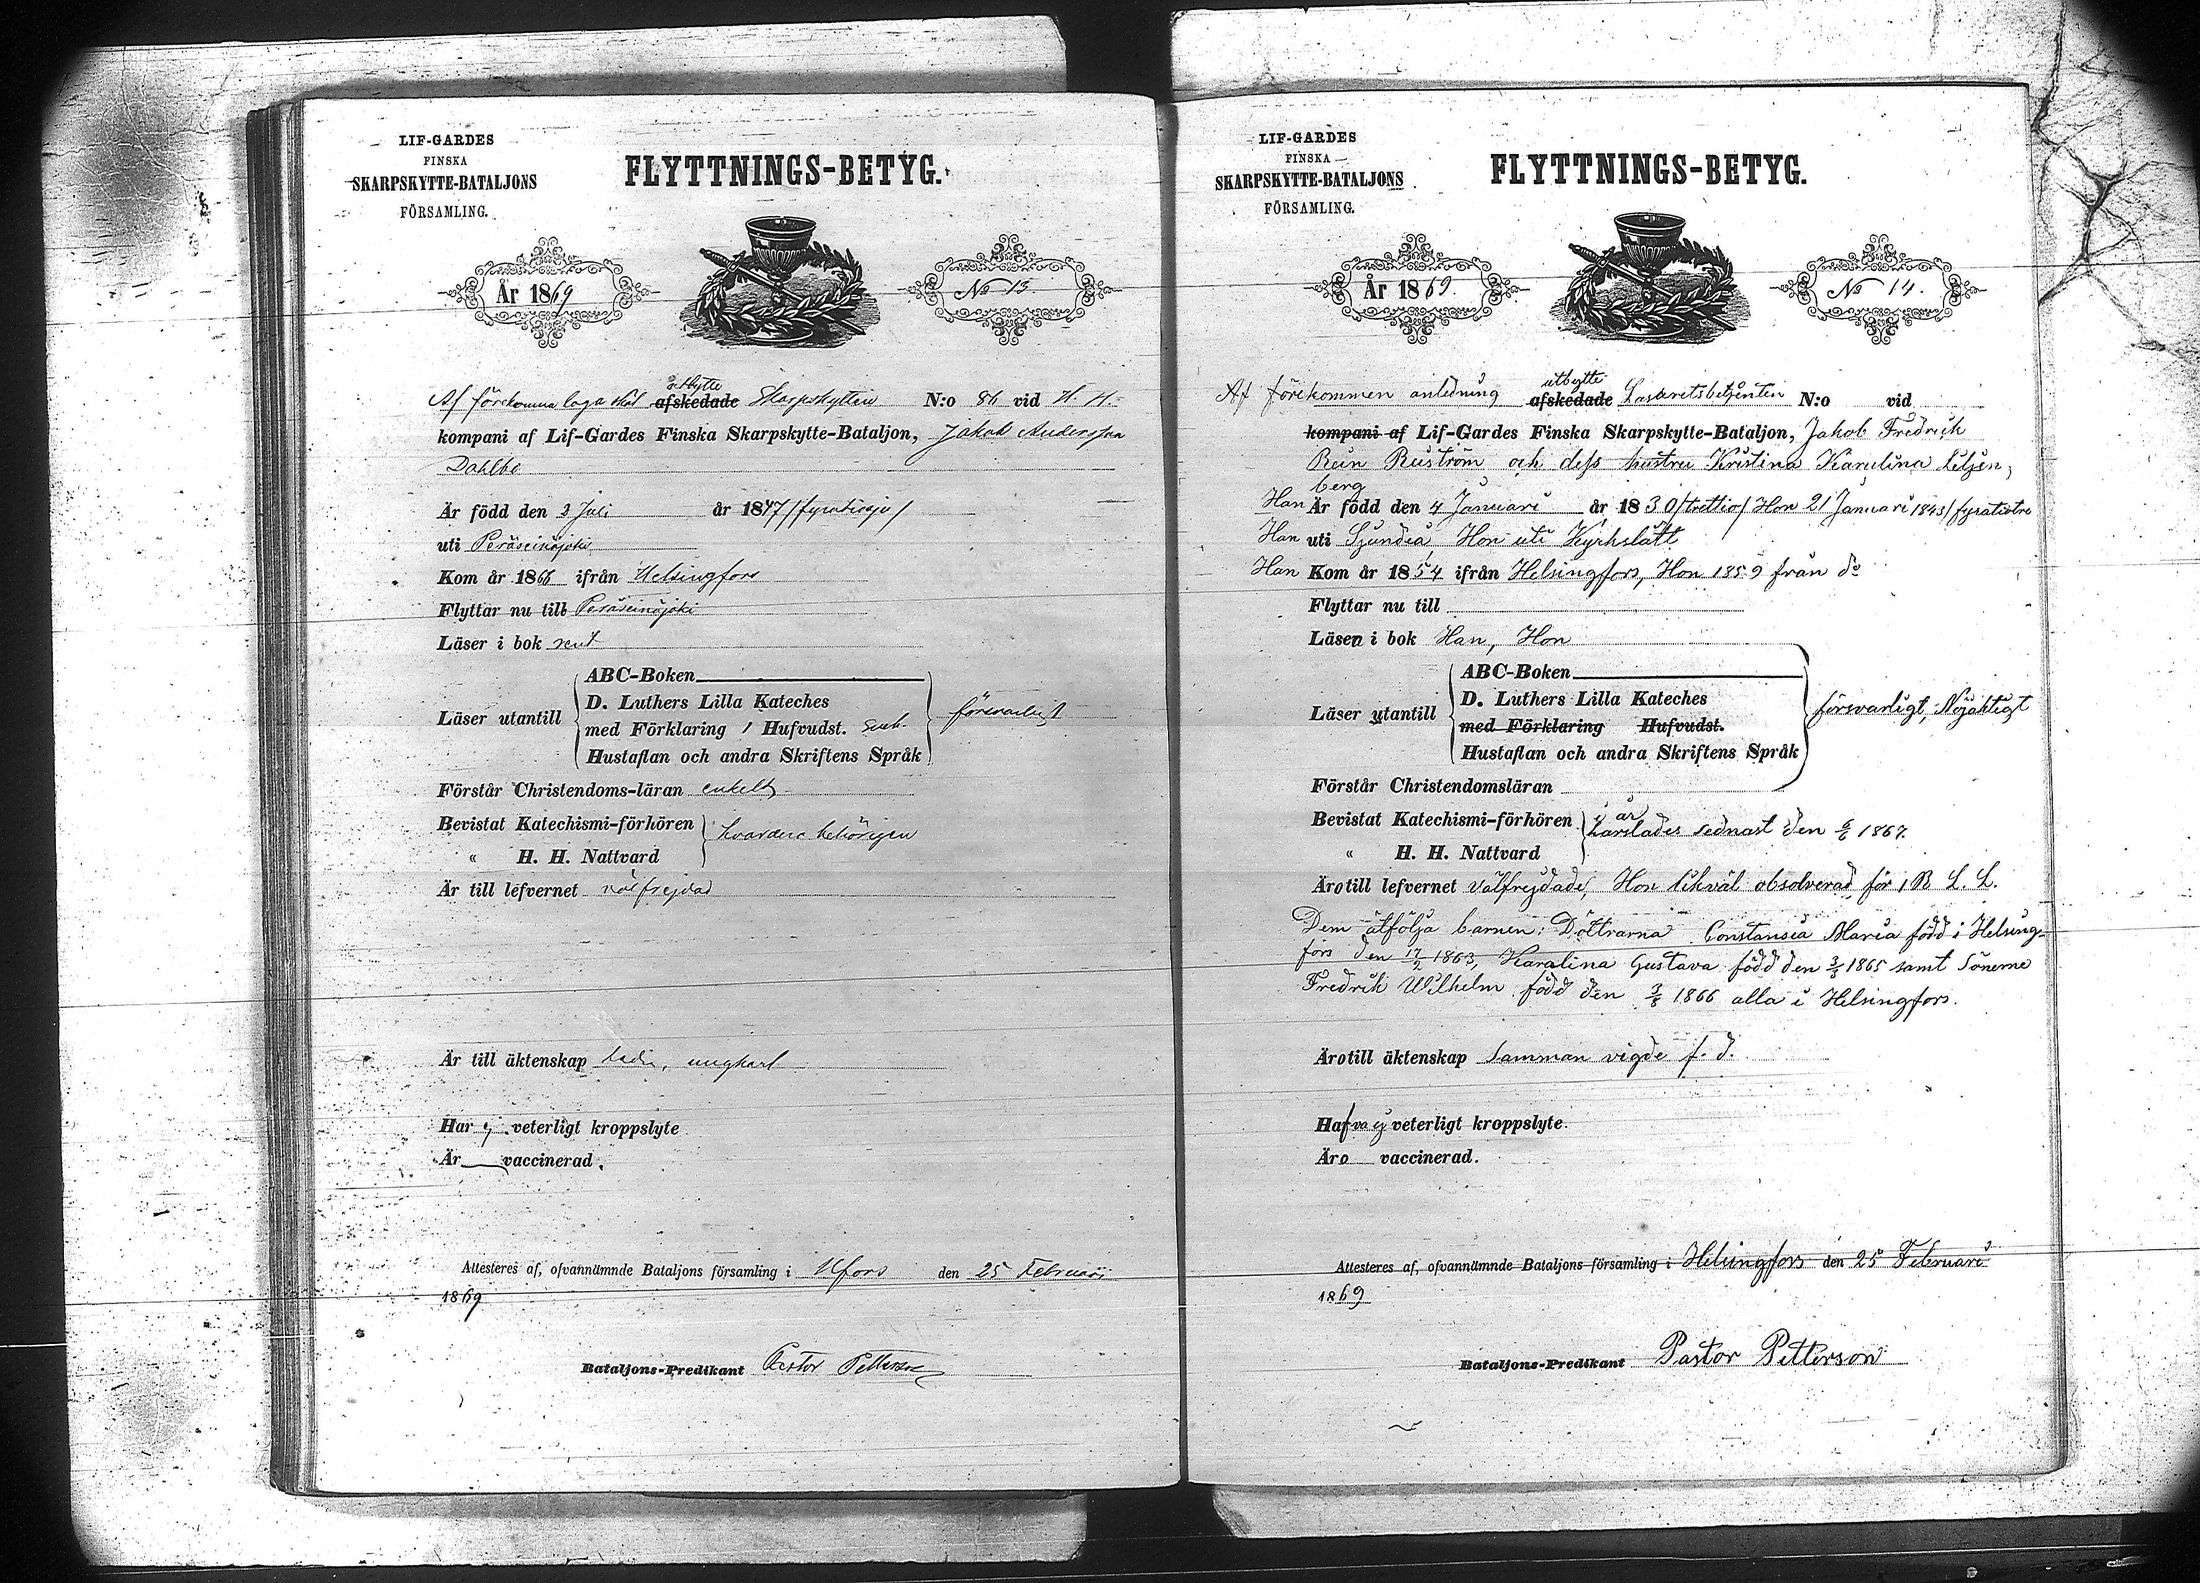 LIF-GARDES
FINSKA
SKARPSKYTTE-BATALJONS
FÖRSAMLING.
FLYTTNINGS-BETYG.
År 1869
No 13.
utbytte
Af förekomna laga skäl afskedade Skarpskytten N:o 86 vid H. H.
kompani af Lif-Gardes Finska Skarpskytte-Bataljon, Jakob Andersson
Dahlbo
Är född den 2 Juli år 1847 /fyratiosju/
uti Peräseinäjoki
Kom år 1866 ifrån Helsingfors
Flyttar nu till Peräseinäjoki
Läser i bok rent
Läser utantill
ABC-Boken
D. Luthers Lilla Kateches
med Förklaring / Hufvudst.
Hustaflan och andra Skriftens Språk
försvarligt
Förstår Christendoms-läran enkelt
Bevistat Katechismi-förhören
" H. H. Nattvard
hvardera behörigen
Är till lefvernet välfrejdad
Är till äktenskap ledig, ungkarl
Har ej veterligt kroppslyte
Är vaccinerad.
Attesteres af, ofvannämnde Bataljons församling i Hfors den 25 Februari
1869
Bataljons-Predikant Pastor Petterson
LIF-GARDES
FINSKA
SKARPSKYTTE-BATALJONS
FÖRSAMLING.
FLYTTNINGS-BETYG.
År 1869.
No 14.
utbytte
Af förekommen anledning afskedade Lasaretsbetjenten N:o vid
kompani af Lif-Gardes Finska Skarpskytte-Bataljon, Jakob Fredrich
Rein Reiström och dess hustru Kristina Karolina Liljen-
berg
Han Är född den 4 Januari år 1830 /trettio/ Hon 21 Januari 1843 /fyratiotre
Han uti Sjundeå, Hon uti Kyrkslätt
Han Kom år 1854 ifrån Helsingfors, Hon 1859 från do
Flyttar nu till
Läsen i bok Han, Hon
Läser utantill
ABC-Boken
D. Luthers Lilla Kateches
med Förklaring Hufvudst.
Hustaflan och andra Skriftens Språk
försvarligt, Nöjaktigt
Förstår Christendomsläran
Bevistat Katechismi-förhören
" H. H. Nattvard
sednast den 6/6 1867.
Äro till lefvernet välfrejdade, Hon likväl absolverad för 1 R L. L.
Dem åtfölja barnen: Döttrarna Constansia Maria född i Helsing-
fors den 17/2 1863, Karalina Gustava född den 3/3 1865 samt Sönerne
Fredrik Wilhelm född den 3/8 1866 alla i Helsingfors.
Äro till äktenskap samman vigde f. d.
Hafva ej veterligt kroppslyte.
Äro vaccinerad.
Attesteres af, ofvannämnde Bataljons församling i Helsingfors den 25 Februari
1869
Bataljons-Predikant Pastor Petterson